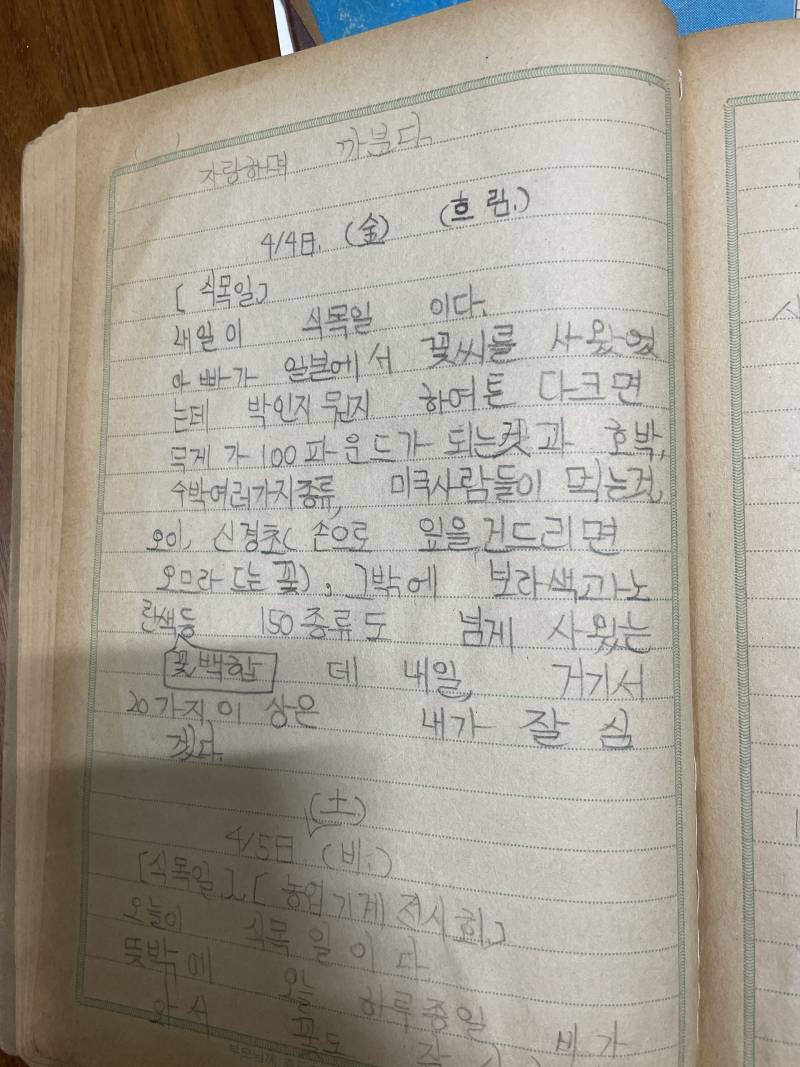 자랑하며 까분다.
4/4日. (金) (흐림.)
[식목일]
내일이 식목일 이다.
아빠가 일본에서 꽃씨를 사왔었
는데 박인지 뭔지 하여튼 다크면
무게가 100파운드가 되는것과 호박,
수박여러가지종류, 미국사람들이 먹는것,
오이, 신경초(손으로 잎을건드리면
오므라드는꽃), 그밖에 보라색과노
란색등
꽃백합 150종류도 넘게 사왔는
데 내일, 거기서
20가지이상은 내가 잘 심
겠다.
(土)
4/5日. (비.)
[식목일], [농업기계전시회.]
오늘이 식목일이다
뜻밖에 오늘 하루종일
비가 와서 꽃도